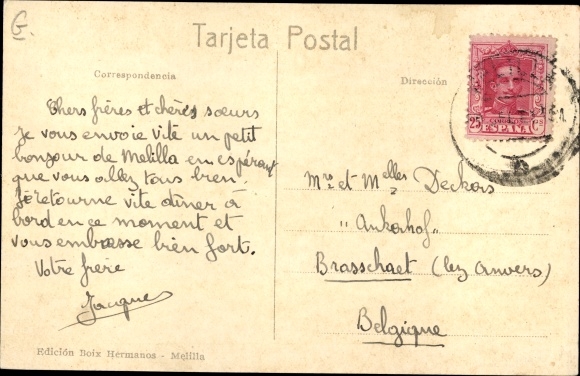 G.
Tarjeta Postal
Correspondencia
Dirección
25 Cs
ESPAÑA
Chers frères et chères soeurs
Je vous envoie vite un petit
bonjour de Melilla en espérant
que vous allez tous bien.
Je retourne vite dîner à
bord en ce moment et
vous embrasse bien fort.
Votre frère
Jacques
Mrs et Melles Deckers
"Ankerhof"
Brasschaet (lez Anvers)
Belgique
Edición Boix Hermanos - Melilla